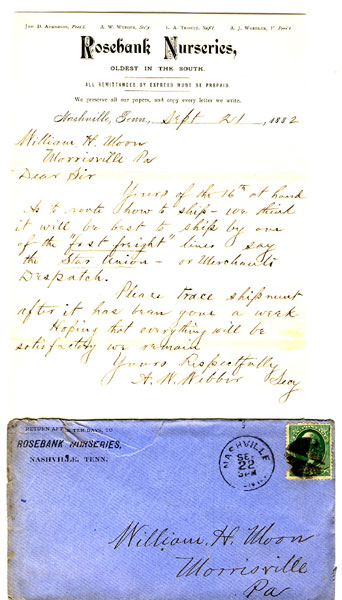 A. W. Webber, Sec'y
Rosebank Nurseries,
OLDEST IN THE SOUTH.
ALL REMITTANCES BY EXPRESS MUST BE PREPAID.
We preserve all our papers, and copy every letter we write.
Nashville, Tenn., Sept 21, 1882
William H. Moon
Morrisville Pa
Dear Sir
Yours of the 16th at hand
As to route & how to ship - we think
it will be best to ship by one
of the "fast freight" lines say
the Star Union - or Merchants
Despatch.
Please trace shipment
after it has been gone a week
Hoping that everything will be
satisfactory we remain
Yours Respectfully
A. W. Webber Secy
RETURN AFTER TEN DAYS, TO
ROSEBANK NURSERIES,
NASHVILLE, TENN.
NASHVILLE
SEP
22
3PM
William H. Moon
Morrisville
Pa